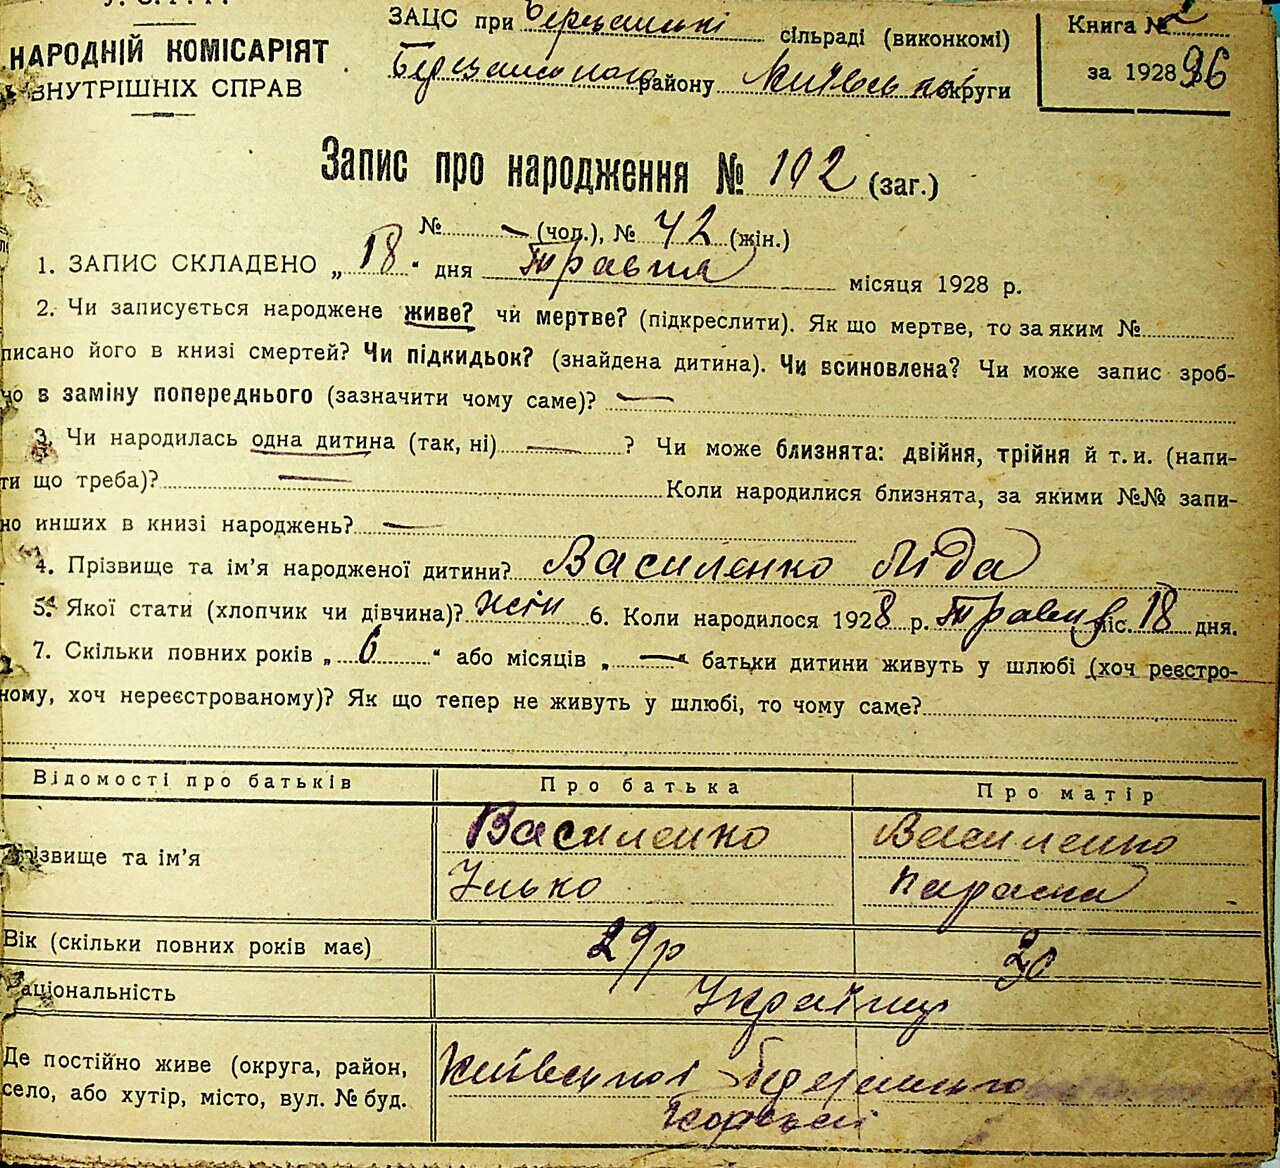 У. С. Р. Р.
НАРОДНІЙ КОМІСАРІЯТ
ВНУТРІШНІХ СПРАВ
ЗАЦС при сільраді (виконкомі)
району Київської округи
Книга № 2
за 1928 96
Запис про народження № 102 (заг.)
№ — (чол.), № 42 (жін.)
1. ЗАПИС СКЛАДЕНО „ 18 “ дня Травня місяця 1928 р.
2. Чи записується народжене живе? чи мертве? (підкреслити). Як що мертве, то за яким №
писано його в книзі смертей? Чи підкидьок? (знайдена дитина). Чи всиновлена? Чи може запис зроб-
но в заміну попереднього (зазначити чому саме)? —
3. Чи народилась одна дитина (так, ні) — ? Чи може близнята: двійня, трійня й т. и. (напи-
ти що треба)? — Коли народилися близнята, за якими №№ запи-
но инших в книзі народжень? —
4. Прізвище та ім’я народженої дитини? Василенко Ліда
5. Якої стати (хлопчик чи дівчина)? жін 6. Коли народилося 1928 р. Травня міс. 18 дня.
7. Скільки повних років „ 6 “ або місяців „ — “ батьки дитини живуть у шлюбі (хоч реєстро-
ному, хоч нереєстрованому)? Як що тепер не живуть у шлюбі, то чому саме?
Відомості про батьків Про батька Про матір
різвище та ім’я Василенко Василенко
Ілько Параска
Вік (скільки повних років має) 29р 30
Національність Українці
Де постійно живе (округа, район, Київської
село, або хутір, місто, вул. № буд.